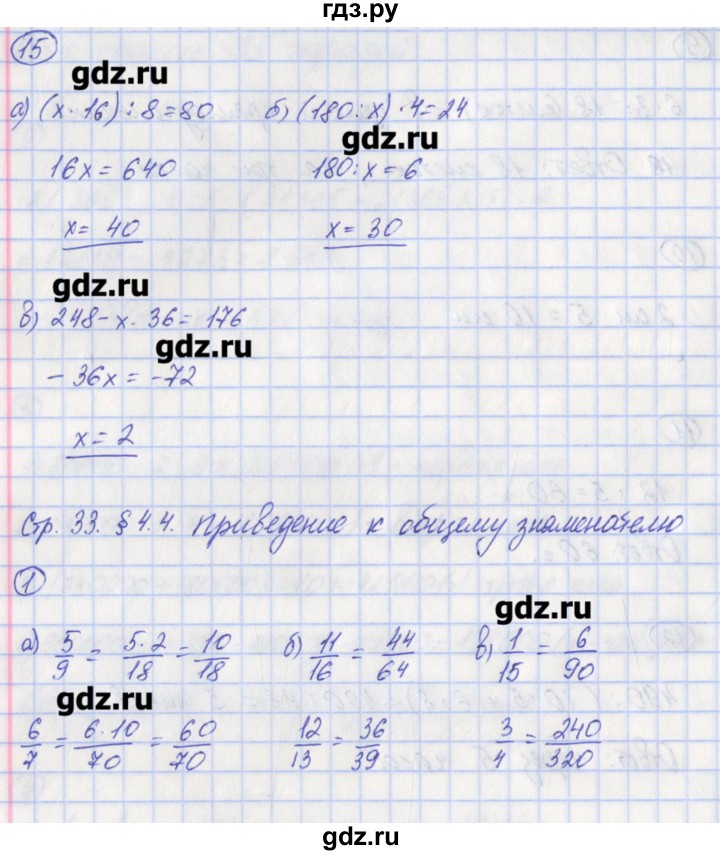 гдз.ру
15
gdz.ru
а) (x · 16) : 8 = 80 б) (180 : x) · 4 = 24
gdz.ru
16x = 640 180 : x = 6
x = 40 x = 30
gdz.ru
в) 248 - x · 36 = 176
gdz.ru
- 36x = -72
x = 2
Стр. 33. § 4.4. Приведение к общему знаменателю
1
gdz.ru
а) 5/9 = 5·2/18 = 10/18 б) 11/16 = 44/64 в) 1/15 = 6/90
gdz.ru
6/7 = 6·10/70 = 60/70 12/13 = 36/39 3/4 = 240/320
gdz.ru